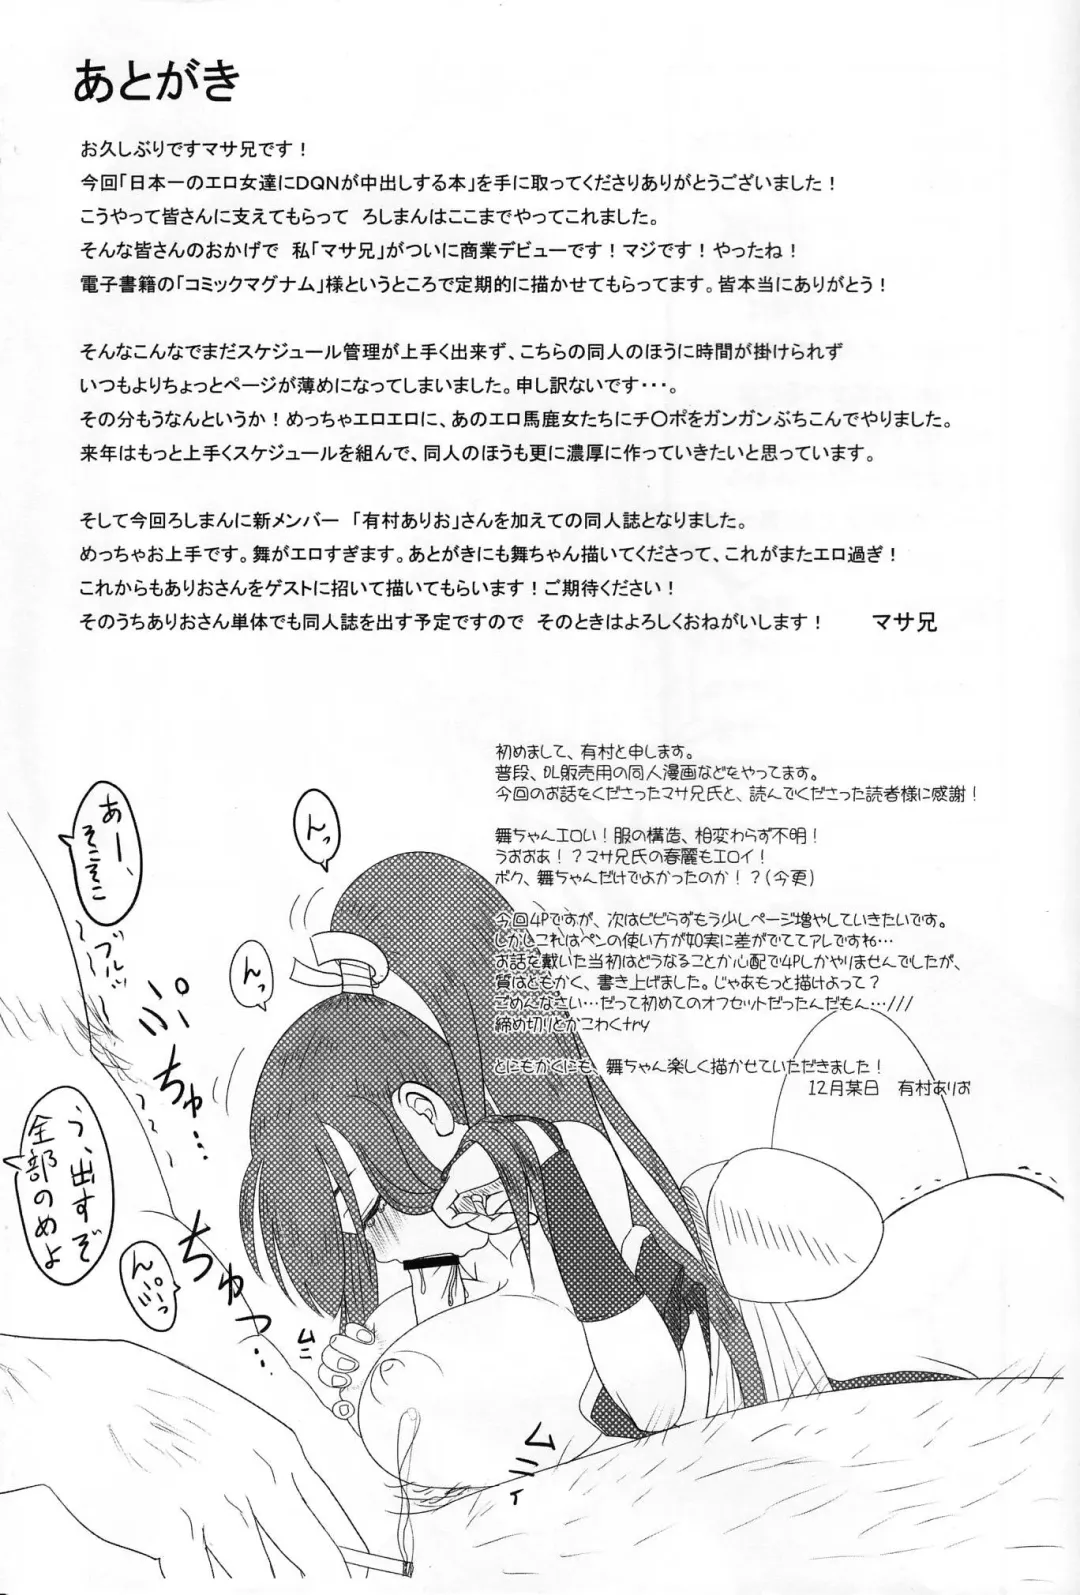 あとがき
お久しぶりですマサ兄です！
今回「日本一のエロ女達にDQNが中出しする本」を手に取ってくださりありがとうございました！
こうやって皆さんに支えてもらって　ろしまんはここまでやってこれました。
そんな皆さんのおかげで　私「マサ兄」がついに商業デビューです！マジです！やったね！
電子書籍の「コミックマグナム」様というところで定期的に描かせてもらってます。皆本当にありがとう！
そんなこんなでまだスケジュール管理が上手く出来ず、こちらの同人のほうに時間が掛けられず
いつもよりちょっとページが薄めになってしまいました。申し訳ないです・・・。
その分もうなんというか！めっちゃエロエロに、あのエロ馬鹿女たちにチ〇ポをガンガンぶちこんでやりました。
来年はもっと上手くスケジュールを組んで、同人のほうも更に濃厚に作っていきたいと思っています。
そして今回ろしまんに新メンバー　「有村ありお」さんを加えての同人誌となりました。
めっちゃお上手です。舞がエロすぎます。あとがきにも舞ちゃん描いてくださって、これがまたエロ過ぎ！
これからもありおさんをゲストに招いて描いてもらいます！ご期待ください！
そのうちありおさん単体でも同人誌を出す予定ですので　そのときはよろしくおねがいします！　　マサ兄
初めまして、有村と申します。
普段、DL販売用の同人漫画などをやってます。
今回のお話をくださったマサ兄氏と、読んでくださった読者様に感謝！
舞ちゃんエロい！服の構造、相変わらず不明！
うおおあ！？マサ兄氏の春麗もエロイ！
ボク、舞ちゃんだけでよかったのか！？(今更)
今回4Pですが、次はビビらずもう少しページ増やしていきたいです。
しかしこれはペンの使い方が如実に差がでててアレですね…
お話を戴いた当初はどうなることか心配で4Pしかやりませんでしたが、
質はともかく、書き上げました。じゃあもっと描けよって？
ごめんなさい…だって初めてのオフセットだったんだもん…///
締め切りとかこわくtry
とにもかくにも、舞ちゃん楽しく描かせていただきました！
12月某日　有村ありお
あー、
そこそこ
んっ
んっ
ブルッ
ちゅ…
う、出すぞ
全部のめよ
ちゅっ…
ムニ
ムニィ